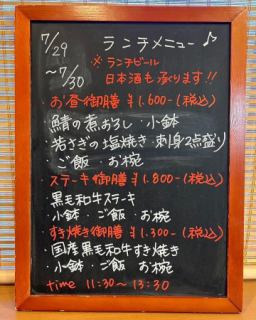 7/29 ランチメニュー♪
～7/30 ※ランチビール
日本酒も承ります!!
お昼御膳 ¥1.600-(税込)
・鯖の煮おろし・小鉢
・若さぎの塩焼き・刺身2点盛り
・ご飯・お椀
ステーキ御膳 ¥1.800-(税込)
・黒毛和牛ステーキ
・小鉢・ご飯・お椀
すき焼き御膳 ¥1.300-(税込)
・国産黒毛和牛すき焼き
・小鉢・ご飯・お椀
time 11:30～13:30